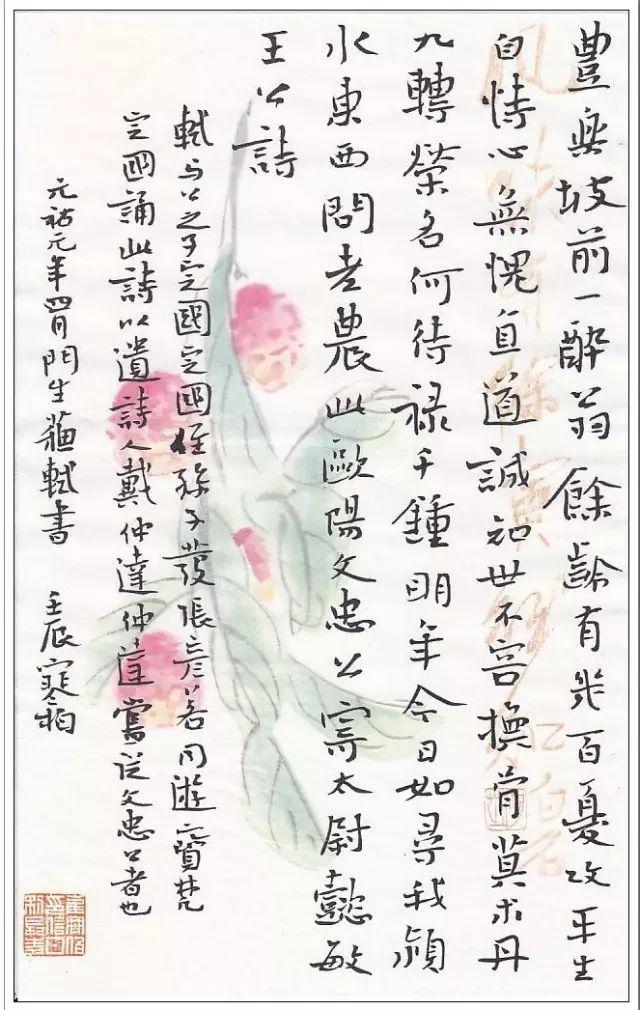 豐樂坡前一醉翁餘齡有幾百憂攻平生
自恃心無愧直道誠知世不容換骨莫求丹
九轉榮名何待祿千鍾明年今日如尋我潁
水東西問老農此歐陽文忠公寄太尉懿敏
王公詩
軾与公之子定國定國侄孫子發張彥若同遊寶梵
定國誦此詩以遺詩人戴仲達仲達嘗從文忠公者也
元祐元年四月門生蘇軾書 壬辰寒柏
白石